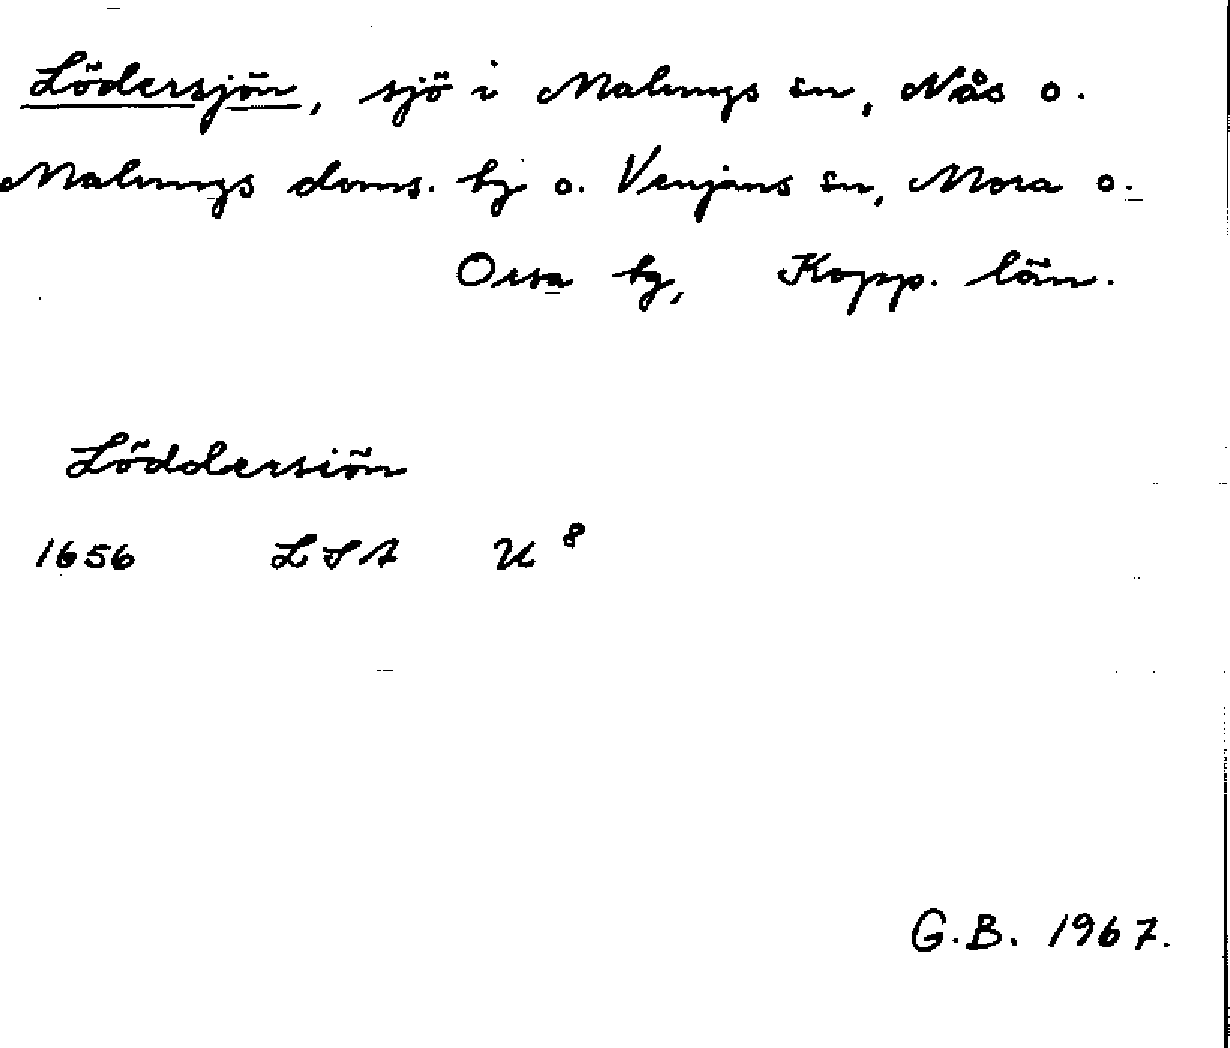 Lödersjön, sjö i Malungs sn, Nås o.
Malungs doms. tg o. Venjans sn, Mora o.
Orsa tg, Kopp. län.
Löddersiön
1656 LSA U 8
G.B. 1967.